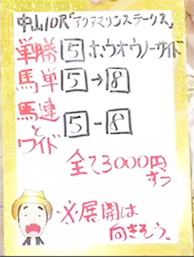 中山10R「アクアマリンステークス」
単勝 5 ホウオウノーサイド
馬単 5→8
馬連とワイド 5-8
全て3000円ずつ
※展開は向きそう。